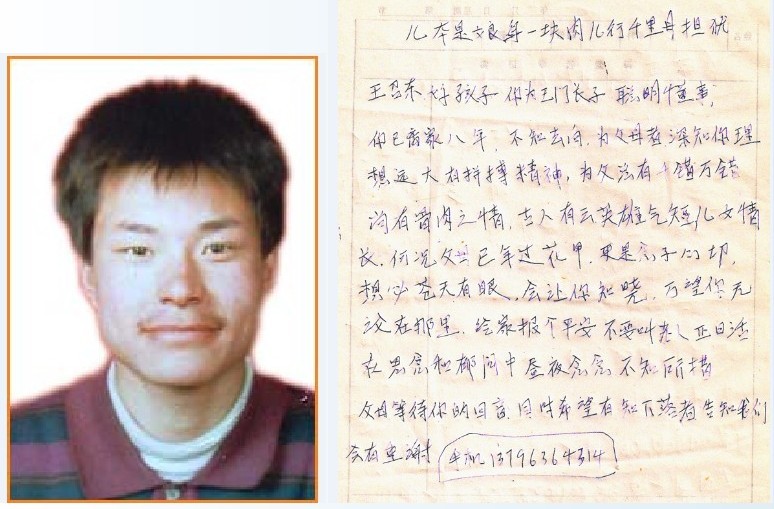 儿本是娘身一块肉儿行千里母担忧
王召东好孩子 你为王门长子 聪明懂事,
你已离家八年, 不知去向, 为父母者深知你理
想远大有拼搏精神, 为父活有千错万错
均有骨肉之情, 古人有云英雄气短儿女情
长, 何况父母已年过花甲, 更是念子心切,
想必苍天有眼, 会让你知晓, 万望你无
论在那里, 给家报个平安 不要叫老人在日活
在思念和郁闷中昼夜念念 不知所措
父母等待你的回音 同时希望有知下落者告知我们
会有重谢 手机 13796364314